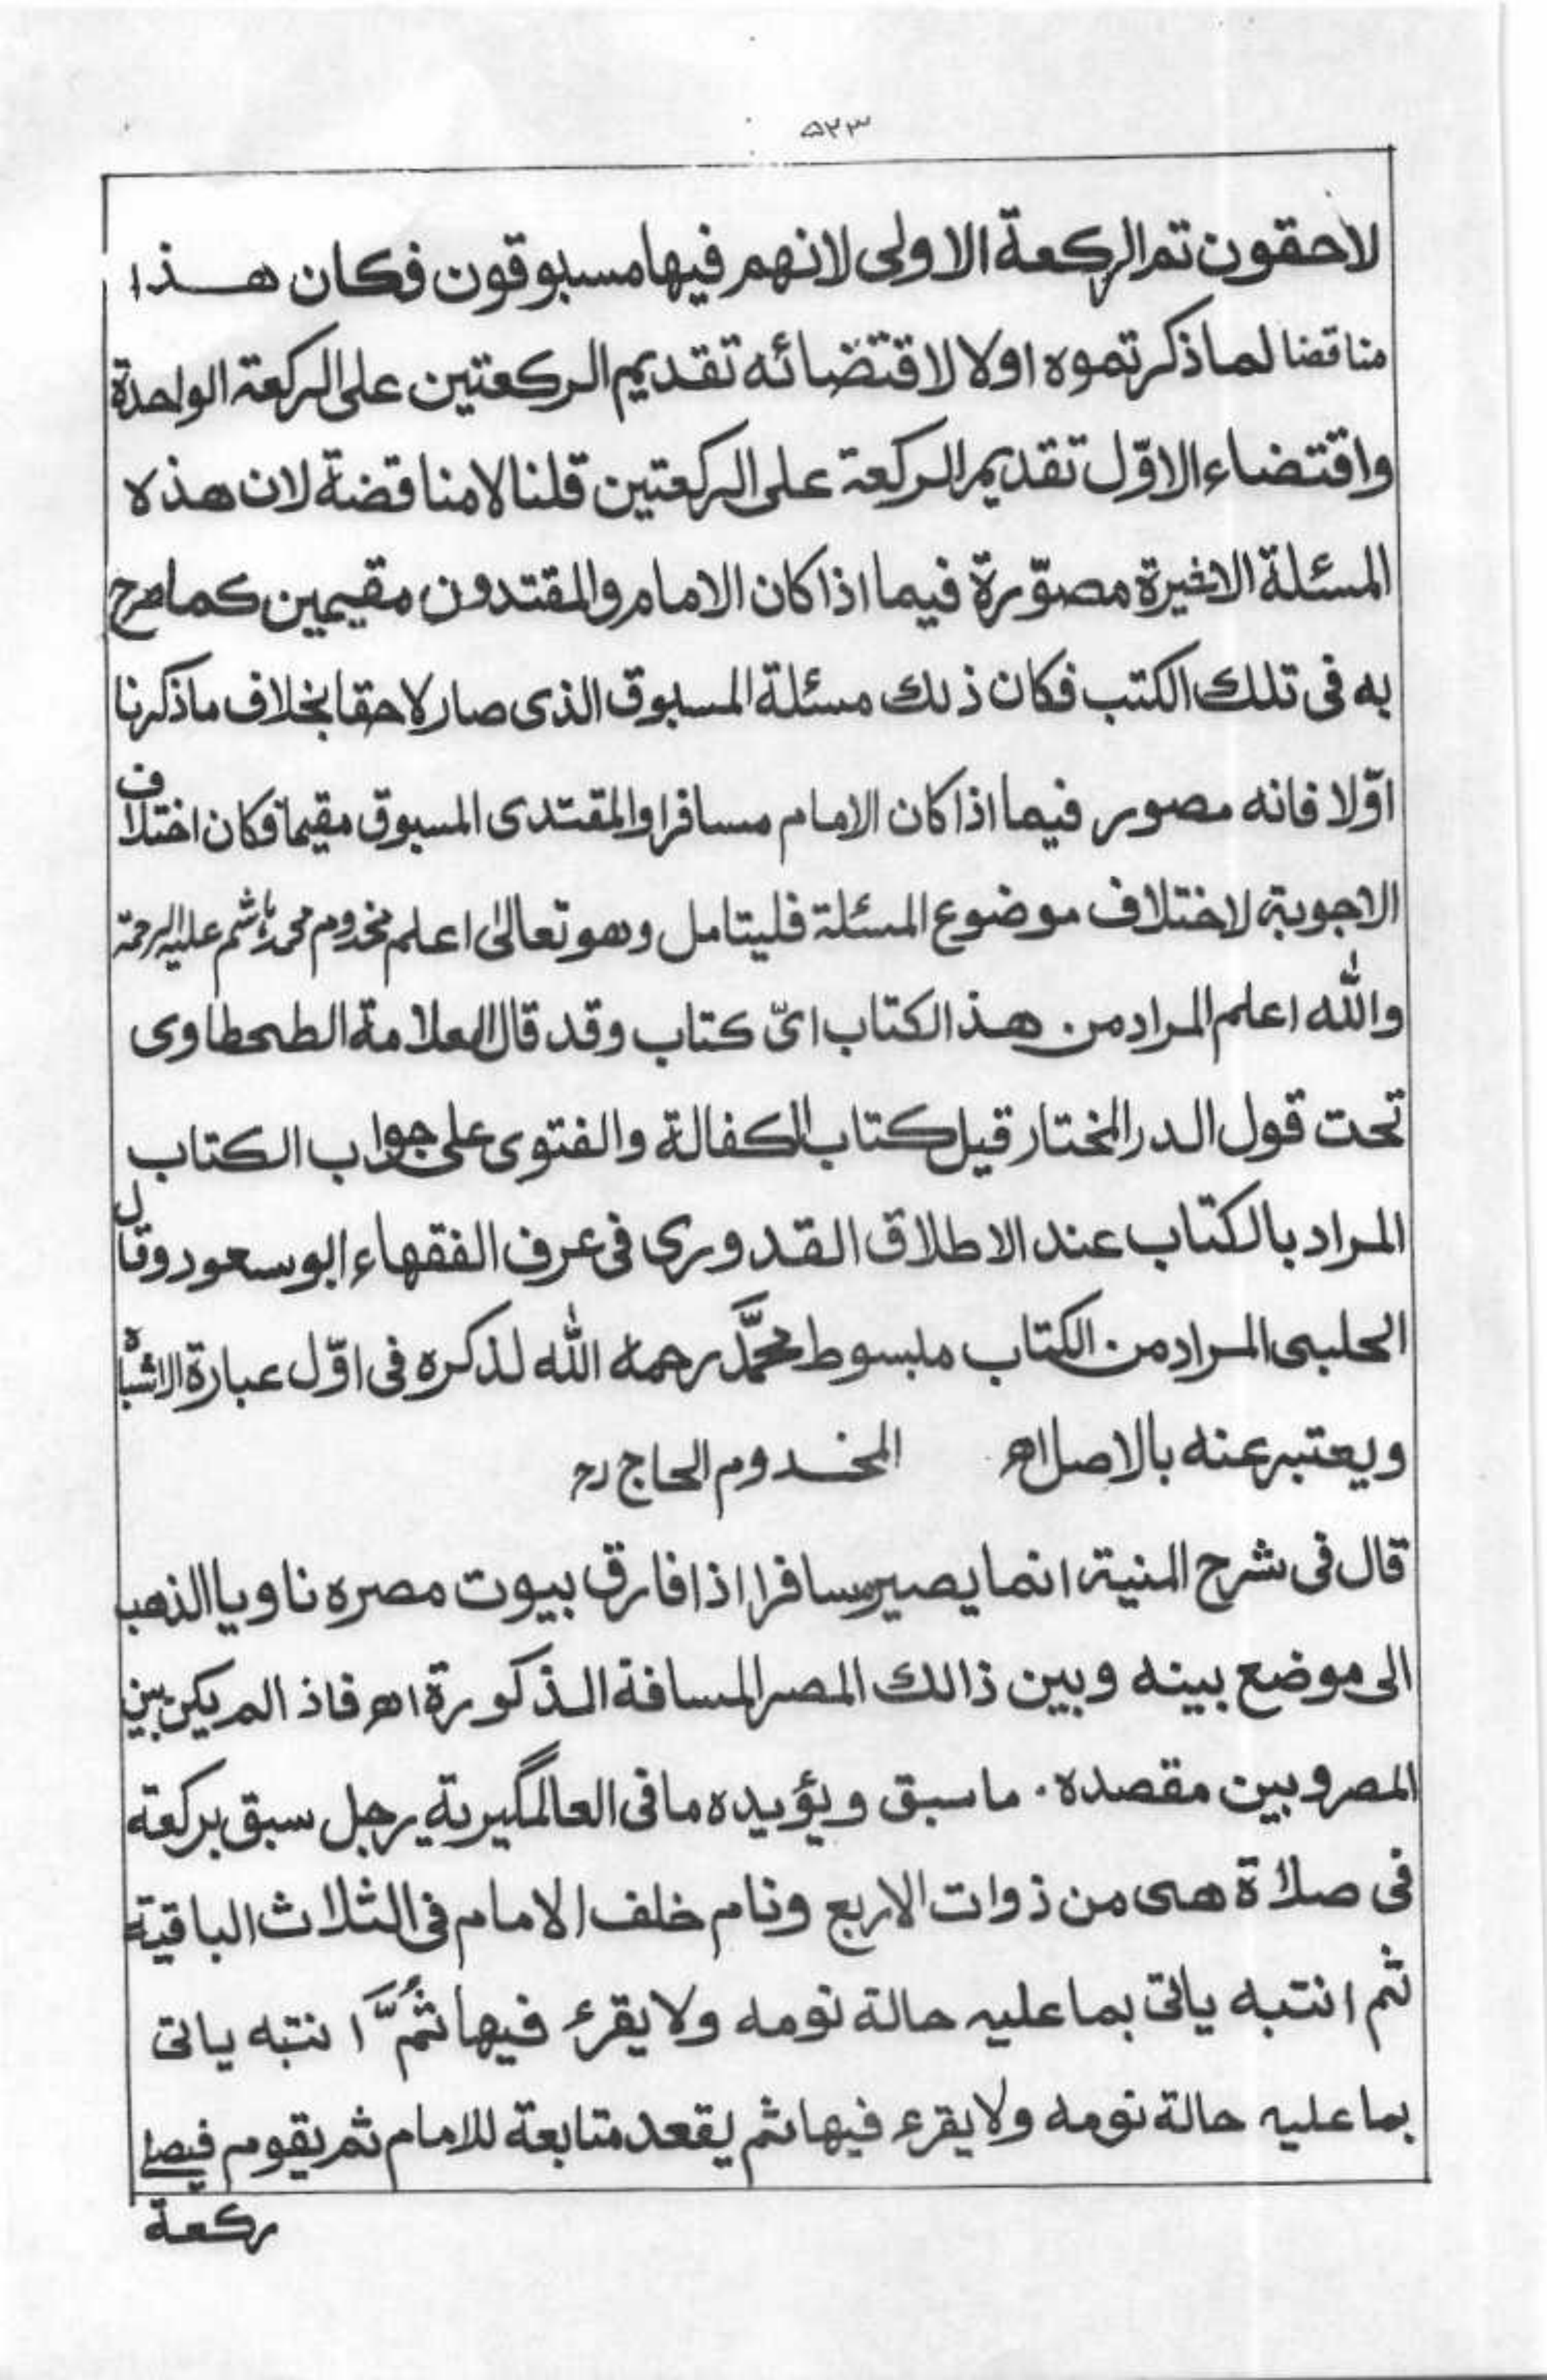 ۵۲۳
لاحقون ثم الركعة الاولى لانهم فيها مسبوقون فكان هذا
مناقضا لما ذكرتموه اولا لاقتضائه تقديم الركعتين على الركعة الواحدة
واقتضاء الاوّل تقديم الركعة على الركعتين قلنا لا مناقضة لان هذه
المسئلة الاخيرة مصوّرة فيما اذا كان الامام والمقتدون مقيمين كما صرح
به فى تلك الكتب فكان ذلك مسئلة المسبوق الذى صار لاحقا بخلاف ما ذكرنا
اوّلا فانه مصور فيما اذا كان الامام مسافرا والمقتدى المسبوق مقيما فكان اختلاف
الاجوبة لاختلاف موضوع المسئلة فليتامل وهو تعالىٰ اعلم مخدوم محمد هاشم عليه الرحمة
والله اعلم المراد من هذ الكتاب اىّ كتاب وقد قال العلامة الطحطاوى
تحت قول الدر المختار قيل كتاب الكفالة والفتوى على جواب الكتاب
المراد بالكتاب عند الاطلاق القدورى فى عرف الفقهاء ابو سعود وقال
الحلبى المراد من الكتاب مبسوط محمَّد رحمه الله لذكره فى اوّل عبارة الاشباه
ويعتبر عنه بالاصل اھ المخدوم الحاج رح
قال فى شرح المنية انما يصير مسافرا اذا فارق بيوت مصره ناويا الذهب
الى موضع بينه وبين ذالك المصر المسافة المذكورة اھ فاذ الم يكن بين
المصر وبين مقصده ما سبق ويؤيده ما فى العالمگيرية رجل سبق بركعة
فى صلاة هى من ذوات الاربع ونام خلف الامام فى الثلاث الباقية
ثم انتبه ياتى بما عليه حالة نومه ولا يقرء فيها ثُمَّ انتبه ياتى
بما عليه حالة نومه ولا يقرء فيها ثم يقعد متابعة للامام ثم يقوم فيصلى
ركعة